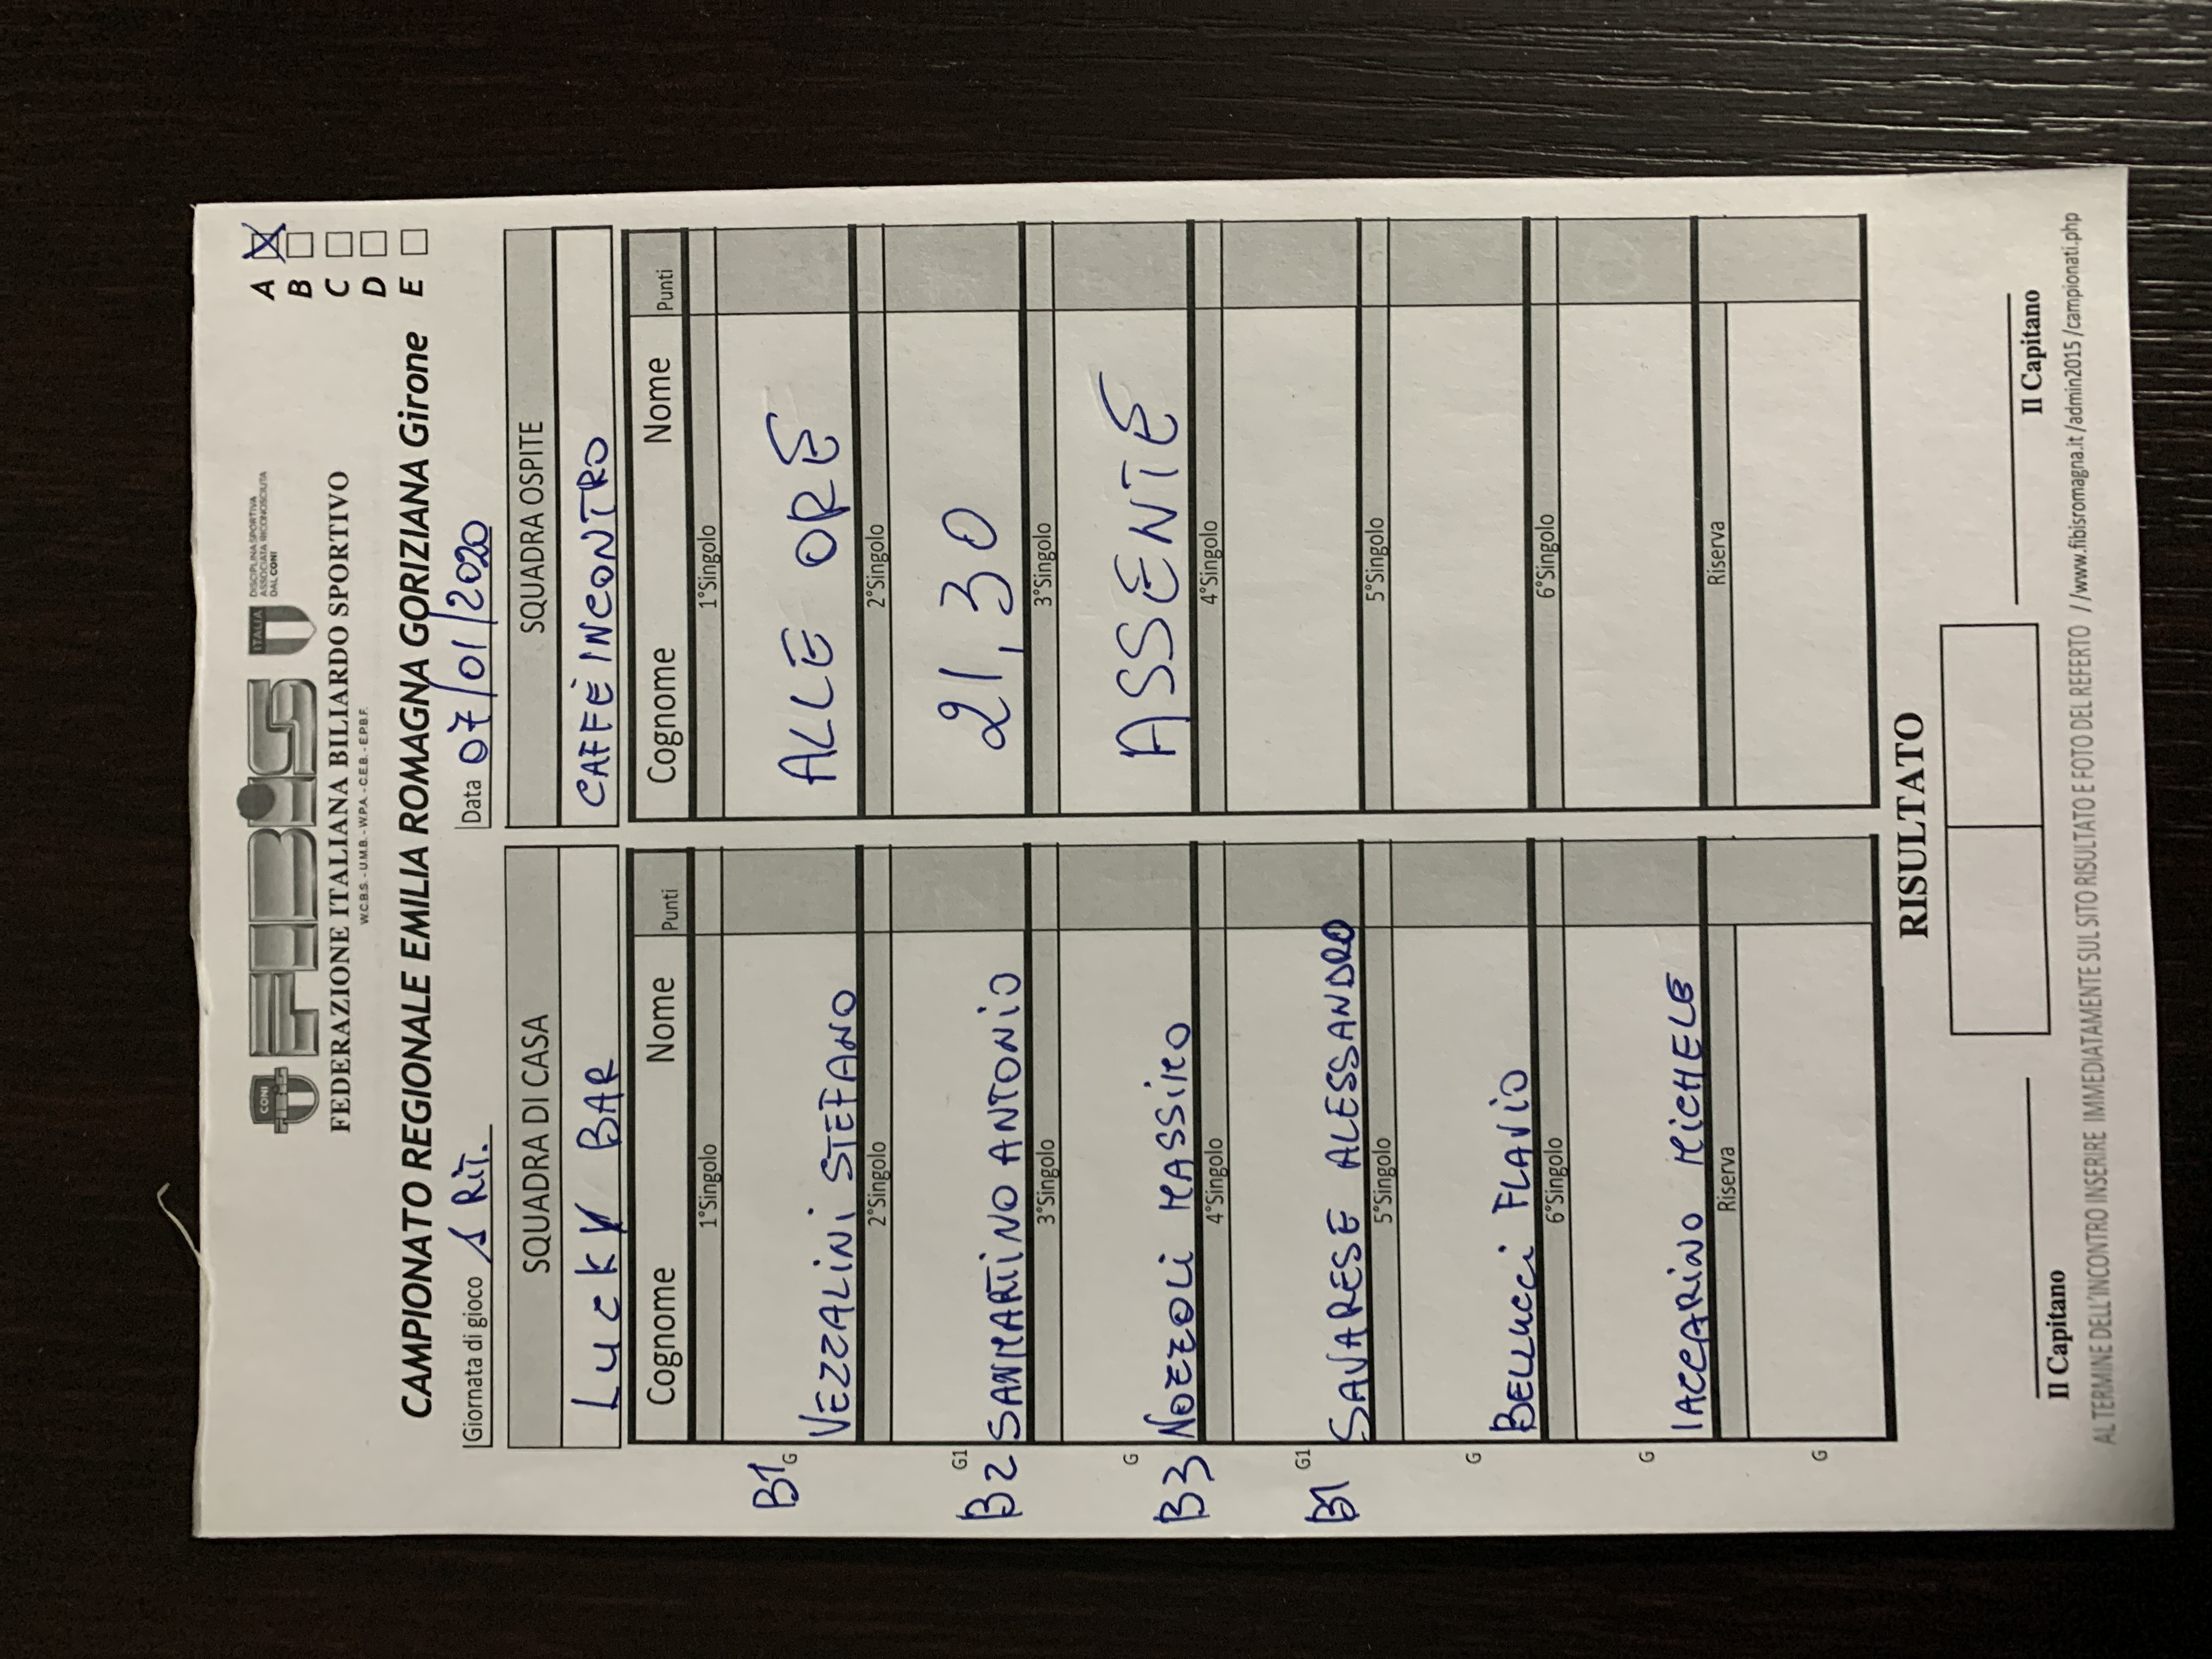 CONI
FIBiS
ITALIA
DISCIPLINA SPORTIVA
ASSOCIATA RICONOSCIUTA
DAL CONI
FEDERAZIONE ITALIANA BILIARDO SPORTIVO
W.C.B.S. - U.M.B. - W.P.A. - C.E.B. - E.P.B.F.
CAMPIONATO REGIONALE EMILIA ROMAGNA GORIZIANA Girone
A
B
C
D
E
Giornata di gioco 1 RIT.
Data 07/01/2020
SQUADRA DI CASA
LUCKY BAR
Cognome Nome Punti
1°Singolo
B1 G VEZZALINI STEFANO
2°Singolo
G1
B2 SANMARTINO ANTONIO
3°Singolo
G
B3 NOZZOLI MASSIMO
4°Singolo
G1
B1 SAVARESE ALESSANDRO
5°Singolo
G BELLUCCI FLAVIO
6°Singolo
G IACCARINO MICHELE
Riserva
G
SQUADRA OSPITE
CAFFÈ INCONTRO
Cognome Nome Punti
1°Singolo
ALLE ORE
2°Singolo
21,30
3°Singolo
ASSENTE
4°Singolo
5°Singolo
6°Singolo
Riserva
RISULTATO
Il Capitano
Il Capitano
AL TERMINE DELL'INCONTRO INSERIRE IMMEDIATAMENTE SUL SITO RISULTATO E FOTO DEL REFERTO //www.fibisromagna.it/admin2015/campionati.php